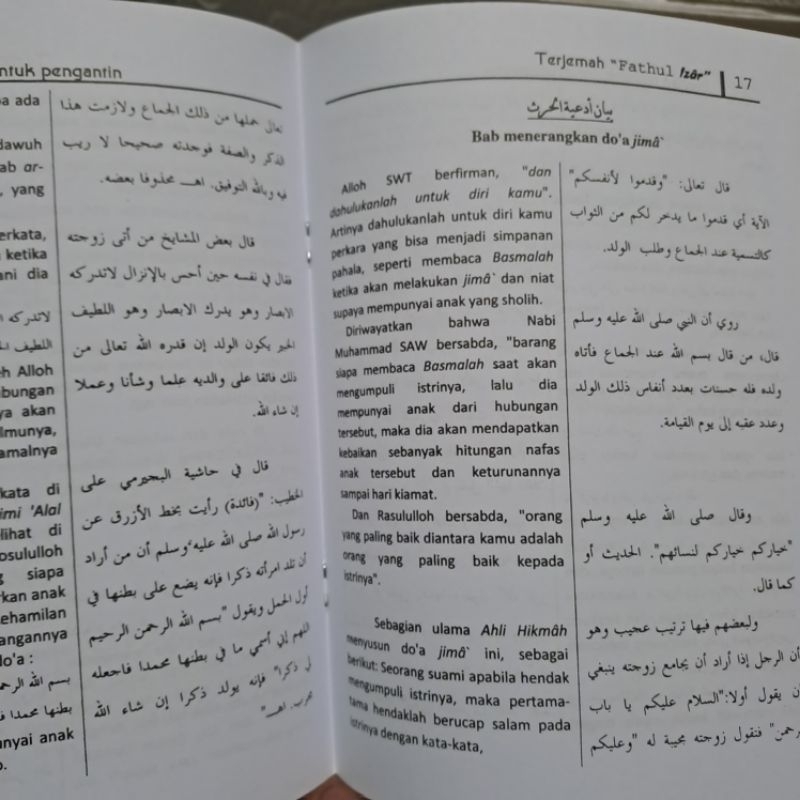 ntuk pengantin
a ada
dawuh
ab ar-
, yang
erkata,
ketika
ani dia
eh Alloh
bungan
ya akan
lmunya,
amalnya
kata di
imi 'Alal
lihat di
osululloh
siapa
rkan anak
kehamilan
angannya
do'a :
بسم الله الرحم
بطنها محمدا ف
nyai anak
تعالى حملها من ذلك الجماع ولازمت هذا
الذكر والصفة فوجدته صحيحا لا ريب
فيه وبالله التوفيق. اهـ محذوفا بعضه.
قال بعض المشايخ من أتى زوجته
فقال في نفسه حين أحس بالإنزال لاتدركه
الابصار وهو يدرك الابصار وهو اللطيف
الخبير يكون الولد إن قدره الله تعالى من
ذلك فائقا على والديه علما وشأنا وعملا
إن شاء الله.
قال في حاشية البجيرمي على
الخطيب: "(فائدة) رأيت بخط الأزرق عن
رسول الله صلى الله عليه وسلم أن من أراد
أن تلد امرأته ذكرا فإنه يضع على بطنها في
أول الحمل ويقول "بسم الله الرحمن الرحيم
اللهم إني أسمي ما في بطنها محمدا فاجعله
لي ذكرا" فإنه يولد ذكرا إن شاء الله
مجرب. اهـ"
Terjemah "Fathul Izâr" 17
بيان أدعية الحرث
Bab menerangkan do'a jimâ`
Alloh SWT berfirman, "dan
dahulukanlah untuk diri kamu".
Artinya dahulukanlah untuk diri kamu
perkara yang bisa menjadi simpanan
pahala, seperti membaca Basmalah
ketika akan melakukan jimâ` dan niat
supaya mempunyai anak yang sholih.
Diriwayatkan bahwa Nabi
Muhammad SAW bersabda, "barang
siapa membaca Basmalah saat akan
mengumpuli istrinya, lalu dia
mempunyai anak dari hubungan
tersebut, maka dia akan mendapatkan
kebaikan sebanyak hitungan nafas
anak tersebut dan keturunannya
sampai hari kiamat.
Dan Rasululloh bersabda, "orang
yang paling baik diantara kamu adalah
orang yang paling baik kepada
istrinya".
Sebagian ulama Ahli Hikmâh
menyusun do'a jimâ` ini, sebagai
berikut: Seorang suami apabila hendak
mengumpuli istrinya, maka pertama-
tama hendaklah berucap salam pada
istrinya dengan kata-kata,
قال تعالى: "وقدموا لأنفسكم"
الآية أي قدموا ما يدخر لكم من الثواب
كالتسمية عند الجماع وطلب الولد.
روي أن النبي صلى الله عليه وسلم
قال، من قال بسم الله عند الجماع فأتاه
ولده فله حسنات بعدد أنفاس ذلك الولد
وعدد عقبه إلى يوم القيامة.
وقال صلى الله عليه وسلم
"خياركم خياركم لنسائهم". الحديث أو
كما قال.
ولبعضهم فيها ترتيب عجيب وهو
أن الرجل إذا أراد أن يجامع زوجته ينبغي
أن يقول أولا:"السلام عليكم يا باب
رحمن" فتقول زوجته مجيبة له "وعليكم